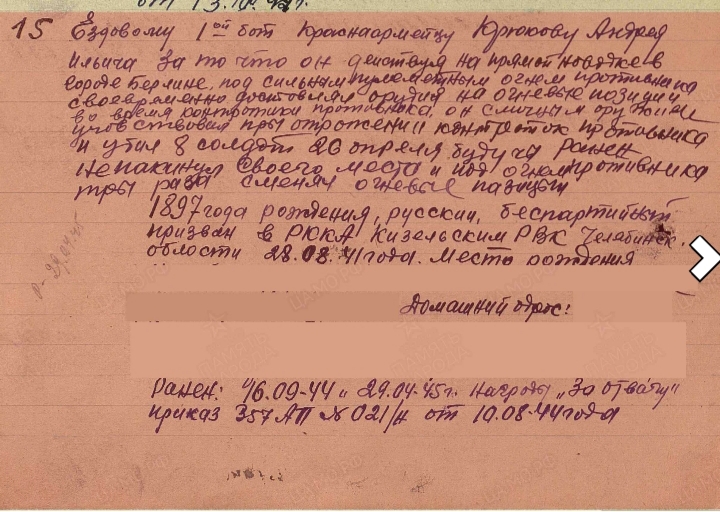 от 13.
15 Ездовому 1ой бат Красноармейцу Крюкову Андрею
Ильича За то что он действуя на прямой новодке в
городе Берлине, под сильным пулеметным огнем противника
своевременно доставлял орудия на огневые позиции
во время контротаки противника, он с личным оружием
учовствовал при отрожении контроток противника
и убил 8 солдат 26 апреля будучи ранен
не пакинул своего места и под огнем противника
три раза сменял огневые пазиции
1897 года рождения, русский, беспартийный
призван в РККА Кизельским РВК Челябинск.
области 28.08.41 года. Место рождения
Домашний адрес:
Р-29.04.45
Ранен: 16.09-44 и 29.04.45г. Награды "За отвагу"
приказ 357 АП № 021/н от 10.08.44 года